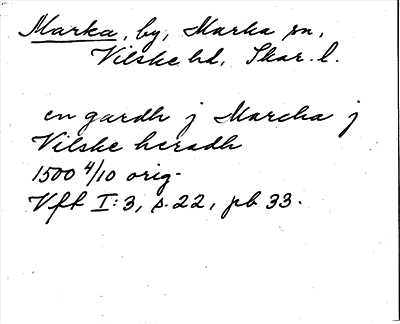 Marka, by, Marka sn,
Vilske hd, Skar. l.
en gardh j Marcha j
Vilske heradh
1500 4/10 orig.
Vff I:3, s. 22, pb 33.